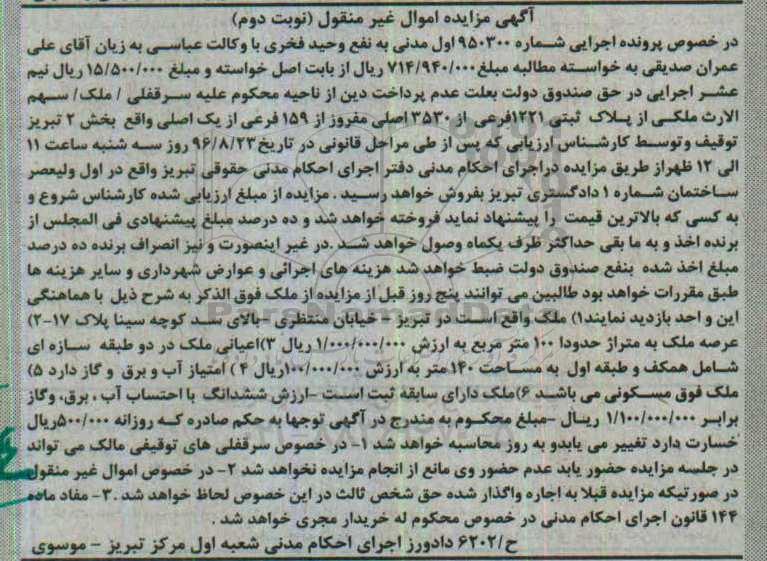 آگهی مزایده اموال غیر منقول (نوبت دوم)
در خصوص پرونده اجرایی شماره ۹۵۰۳۰۰ اول مدنی به نفع وحید فخری با وکالت عباسی به زیان آقای علی
عمران صدیقی به خواسته مطالبه مبلغ ۷۱۴/۹۴۰/۰۰۰ ریال از بابت اصل خواسته و مبلغ ۱۵/۵۰۰/۰۰۰ ریال نیم
عشر اجرایی در حق صندوق دولت بعلت عدم پرداخت دین از ناحیه محکوم علیه سرقفلی / ملک/ سهم
الارث ملکی از پلاک ثبتی ۱۲۲۱فرعی از ۳۵۳۰ اصلی مفروز از ۱۵۹ فرعی از یک اصلی واقع بخش ۲ تبریز
توقیف وتوسط کارشناس ارزیابی که پس از طی مراحل قانونی در تاریخ ۹۶/۸/۲۳ روز سه شنبه ساعت ۱۱
الی ۱۲ ظهراز طریق مزایده دراجرای احکام مدنی دفتر اجرای احکام مدنی حقوقی تبریز واقع در اول ولیعصر
ساختمان شماره ۱ دادگستری تبریز بفروش خواهد رسید . مزایده از مبلغ ارزیابی شده کارشناس شروع و
به کسی که بالاترین قیمت را پیشنهاد نماید فروخته خواهد شد و ده درصد مبلغ پیشنهادی فی المجلس از
برنده اخذ و به ما بقی حداکثر ظرف یکماه وصول خواهد شد .در غیر اینصورت و نیز انصراف برنده ده درصد
مبلغ اخذ شده بنفع صندوق دولت ضبط خواهد شد هزینه های اجرائی و عوارض شهرداری و سایر هزینه ها
طبق مقررات خواهد بود طالبین می توانند پنج روز قبل از مزایده از ملک فوق الذکر به شرح ذیل با هماهنگی
این و احد بازدید نمایند۱) ملک واقع است در تبریز - خیابان منتظری -بالای سد کوچه سینا پلاک ۱۷-۲)
عرصه ملک به متراژ حدودا ۱۰۰ متر مربع به ارزش ۱/۰۰۰/۰۰۰/۰۰۰ ریال ۳)اعیانی ملک در دو طبقه سازه ای
شامل همکف و طبقه اول به مساحت ۱۴۰ متر به ارزش ۱۰۰/۰۰۰/۰۰۰ریال ۴ ) امتیاز آب و برق و گاز دارد ۵)
ملک فوق مسکونی می باشد ۶)ملک دارای سابقه ثبت است -ارزش ششدانگ با احتساب آب ، برق، وگاز
برابر ۱/۱۰۰/۰۰۰/۰۰۰ ریال -مبلغ محکوم به مندرج در آگهی توجها به حکم صادره که روزانه ۵۰۰/۰۰۰ریال
خسارت دارد تغییر می یابدو به روز محاسبه خواهد شد ۱- در خصوص سرقفلی های توقیفی مالک می تواند
در جلسه مزایده حضور یابد عدم حضور وی مانع از انجام مزایده نخواهد شد ۲- در خصوص اموال غیر منقول
در صورتیکه مزایده قبلا به اجاره واگذار شده حق شخص ثالث در این خصوص لحاظ خواهد شد .۳- مفاد ماده
۱۴۴ قانون اجرای احکام مدنی در خصوص محکوم له خریدار مجری خواهد شد .
ح/۶۲۰۲ دادورز اجرای احکام مدنی شعبه اول مرکز تبریز - موسوی